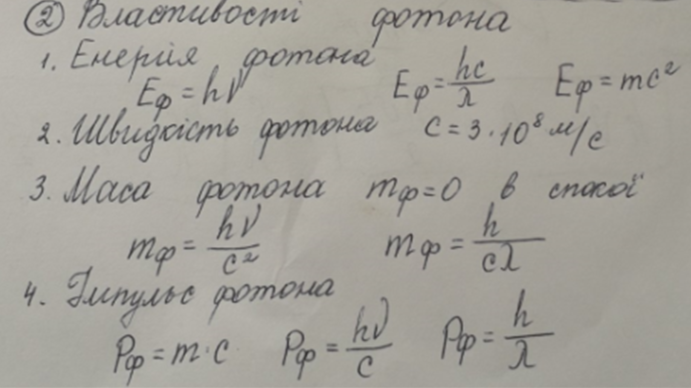 ② Властивості фотона
1. Енергія фотона
Eф = hν Eф = hc/λ Eф = mc²
2. Швидкість фотона c = 3·10⁸ м/с
3. Маса фотона mф = 0 в спокої
mф = hν/c² mф = h/cλ
4. Імпульс фотона
Pф = m·c Pф = hν/c Pф = h/λ